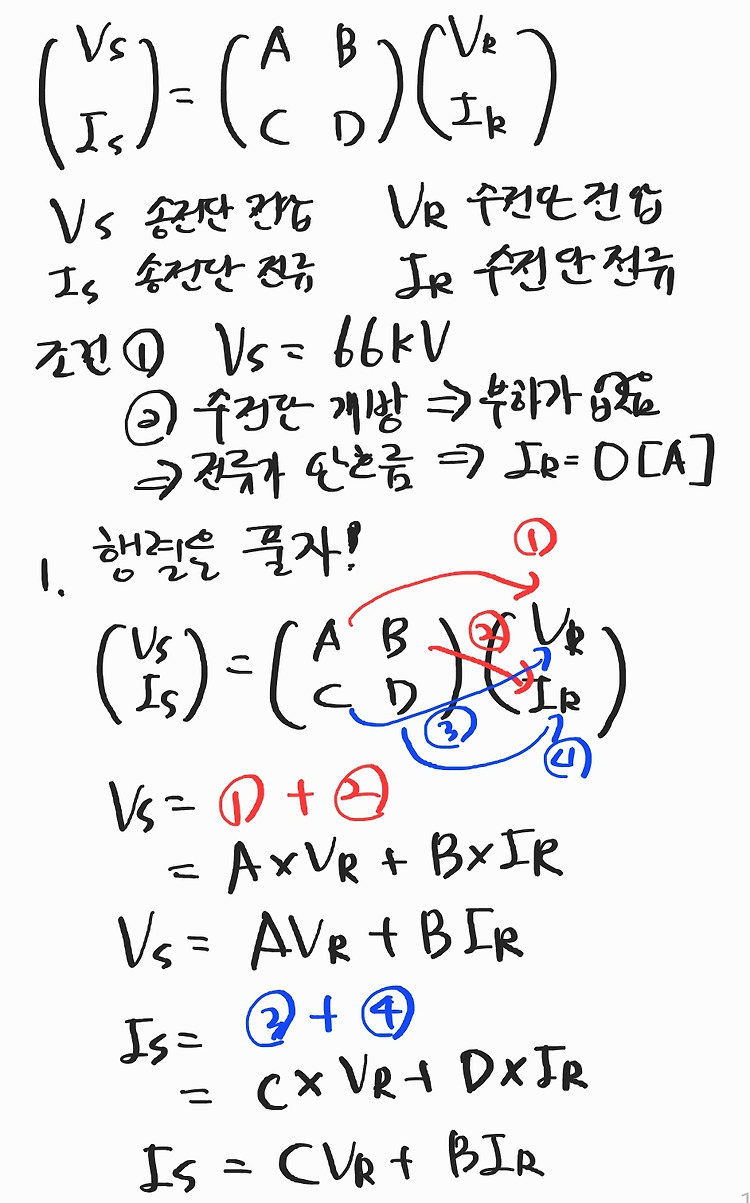 (Vs Is) = (A B C D)(VR IR)
Vs 송전단 전압 VR 수전단 전압
Is 송전단 전류 IR 수전단 전류
조건 ① Vs = 66kV
② 수전단 개방 ⇒ 부하가 없음
⇒ 전류가 안흐름 ⇒ IR = 0 [A]
1. 행렬을 풀자!
①
(Vs Is) = (A B C D) ② (VR IR)
③ ④
Vs = ① + ②
= A×VR + B×IR
Vs = AVR + BIR
Is = ③ + ④
= C×VR + D×IR
Is = CVR + BIR
1